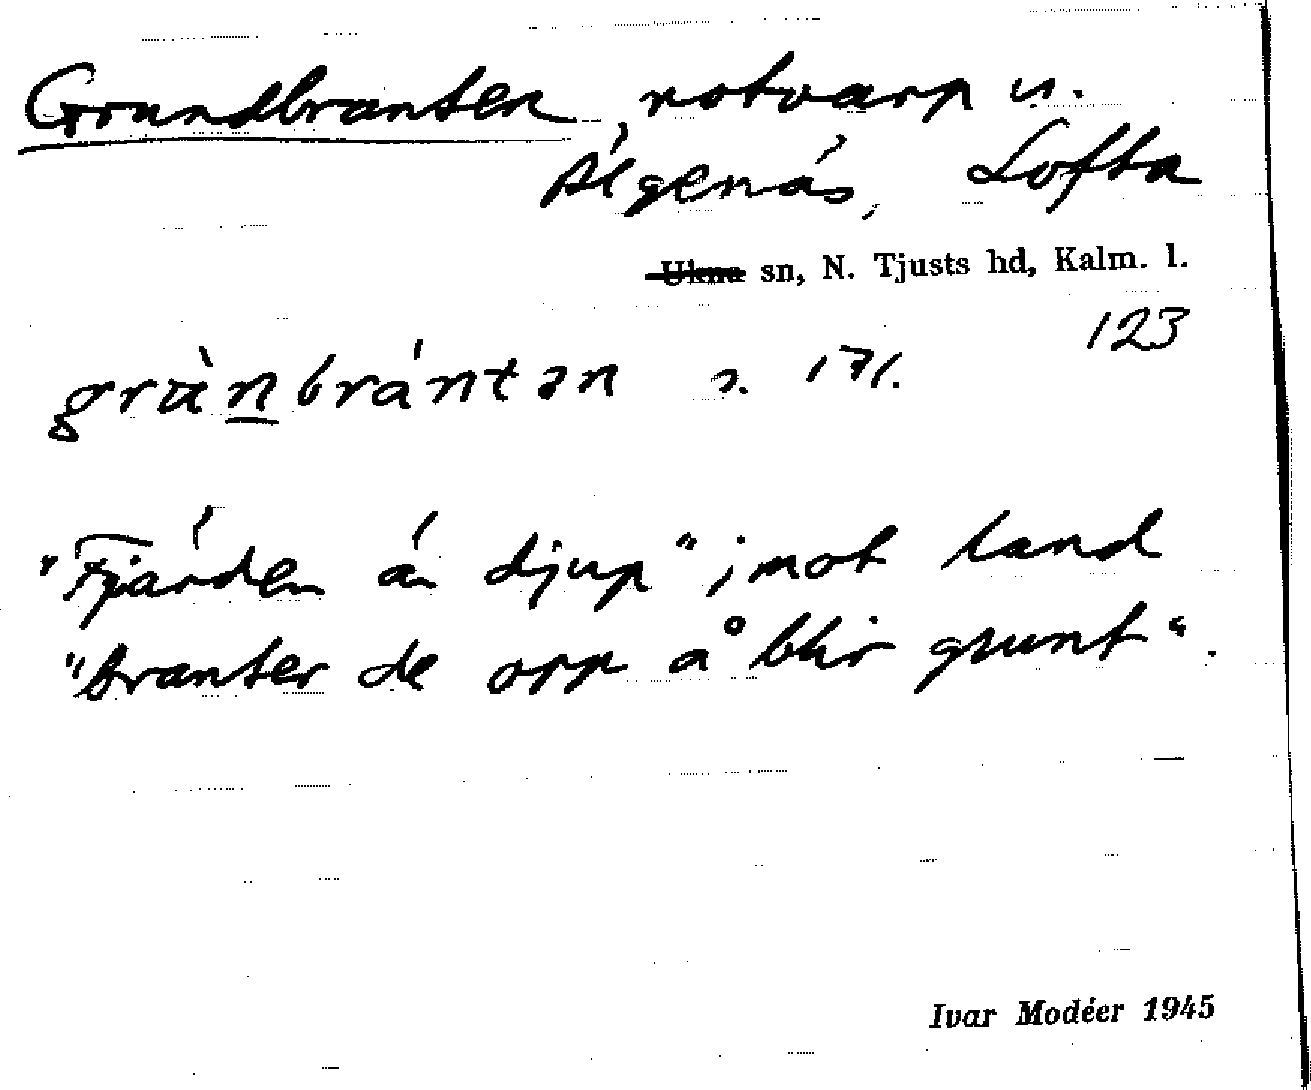 Grundbranten, notvarp u.
Älgenäs, Lofta
Ukna sn, N. Tjusts hd, Kalm. l.
123
grùnbrántən s. 171.
"Fjärden ä djup"; mot land
"branter de opp å blir grunt".
Ivar Modéer 1945